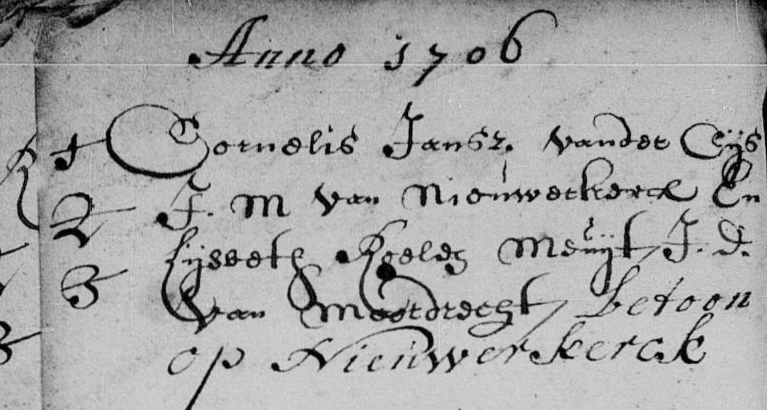 Anno 1706
1 Cornelis Jansz. vander Cijs
2 J. M van Nieuwerkerck En
3 Lijsbeth Roelen Meuijt, J. d.
van Moordrecht, betoon
op Nieuwerkerck